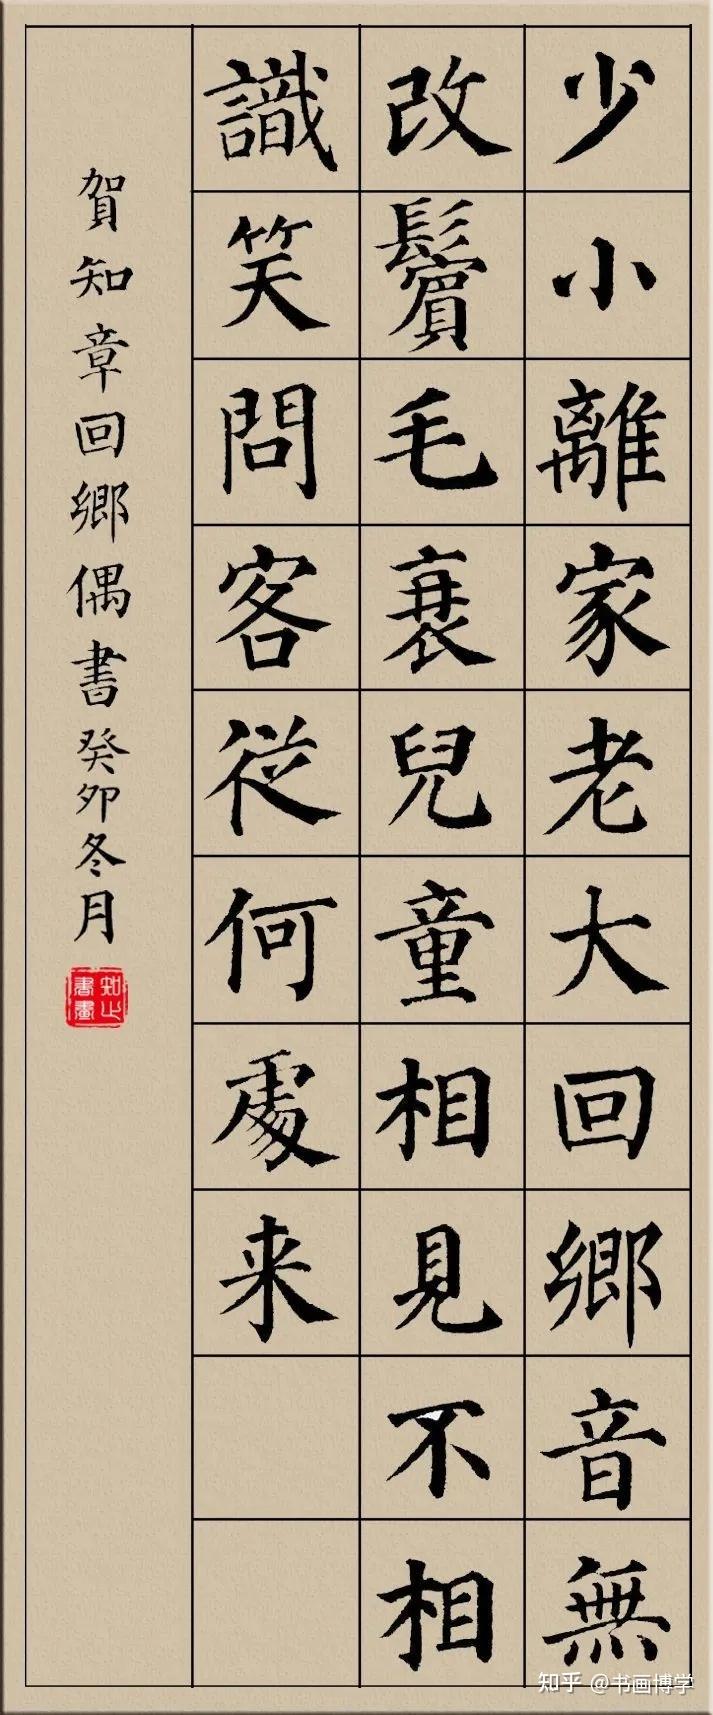 少小離家老大回鄉音無
改鬢毛衰兒童相見不相
識笑問客從何處来
賀知章回鄉偶書癸卯冬月
知止書畫
知乎 @书画博学